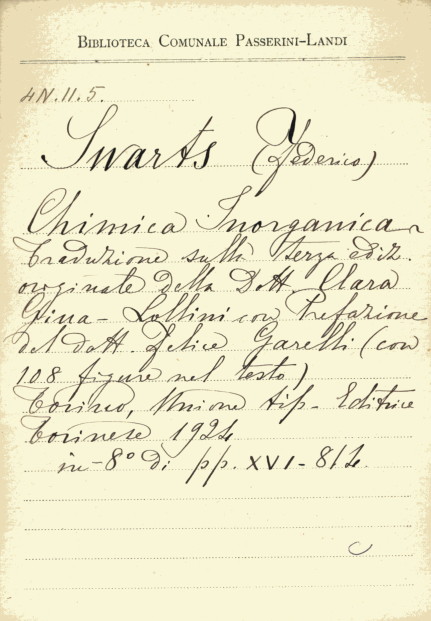 BIBLIOTECA COMUNALE PASSERINI-LANDI
4N.II.5.
Swarts (Federico)
Chimica Inorganica
Traduzione sulla terza ediz.
originale della Dott. Clara
Gina-Lollini con Prefazione
del dott. Felice Garelli (con
108 figure nel testo)
Torino, Unione tip-Editrice
Torinese 1924
in-8º di pp. XVI-814.